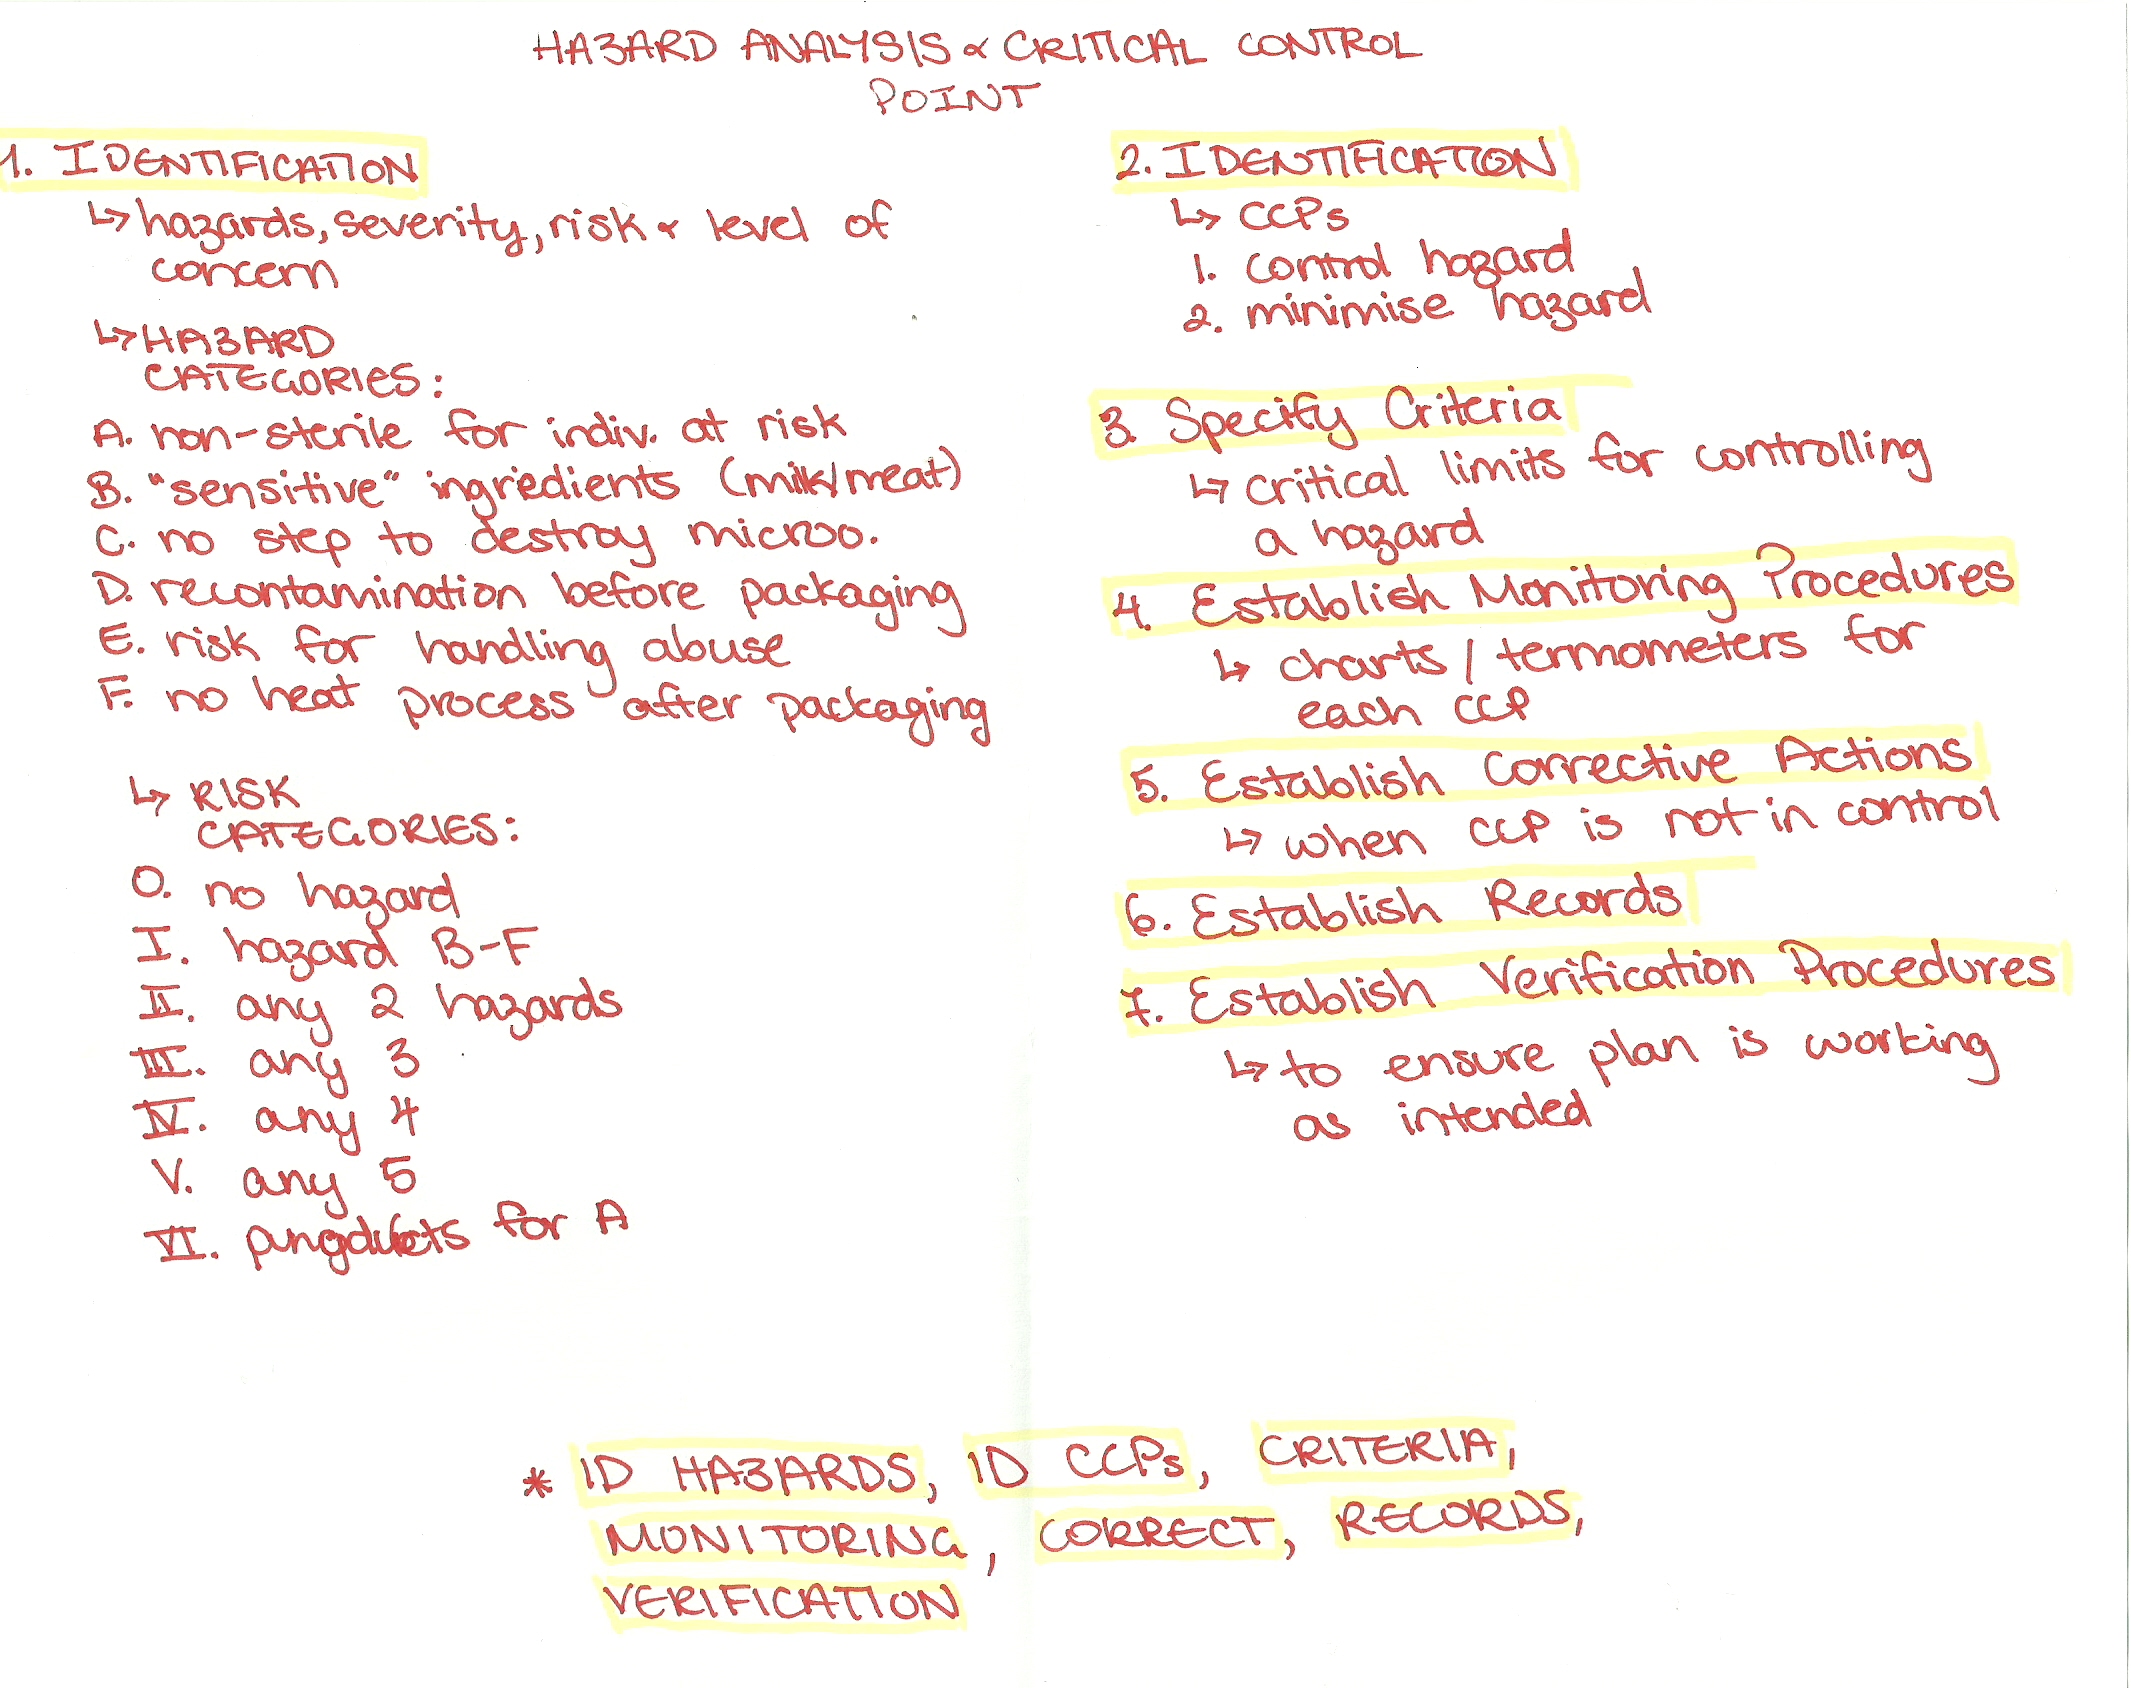 HAZARD ANALYSIS & CRITICAL CONTROL
POINT
1. IDENTIFICATION
↳ hazards, severity, risk & level of
concern
↳ HAZARD
CATEGORIES:
A. non-sterile for indiv. at risk
B. "sensitive" ingredients (milk/meat)
C. no step to destroy microo.
D. recontamination before packaging
E. risk for handling abuse
F. no heat process after packaging
↳ RISK
CATEGORIES:
O. no hazard
I. hazard B-F
II. any 2 hazards
III. any 3
IV. any 4
V. any 5
VI. for A
2. IDENTIFICATION
↳ CCPs
1. control hazard
2. minimise hazard
3. Specify Criteria
↳ critical limits for controlling
a hazard
4. Establish Monitoring Procedures
↳ charts / termometers for
each CCP
5. Establish Corrective Actions
↳ when CCP is not in control
6. Establish Records
7. Establish Verification Procedures
↳ to ensure plan is working
as intended
* ID HAZARDS, ID CCPs, CRITERIA,
MONITORING, CORRECT, RECORDS,
VERIFICATION